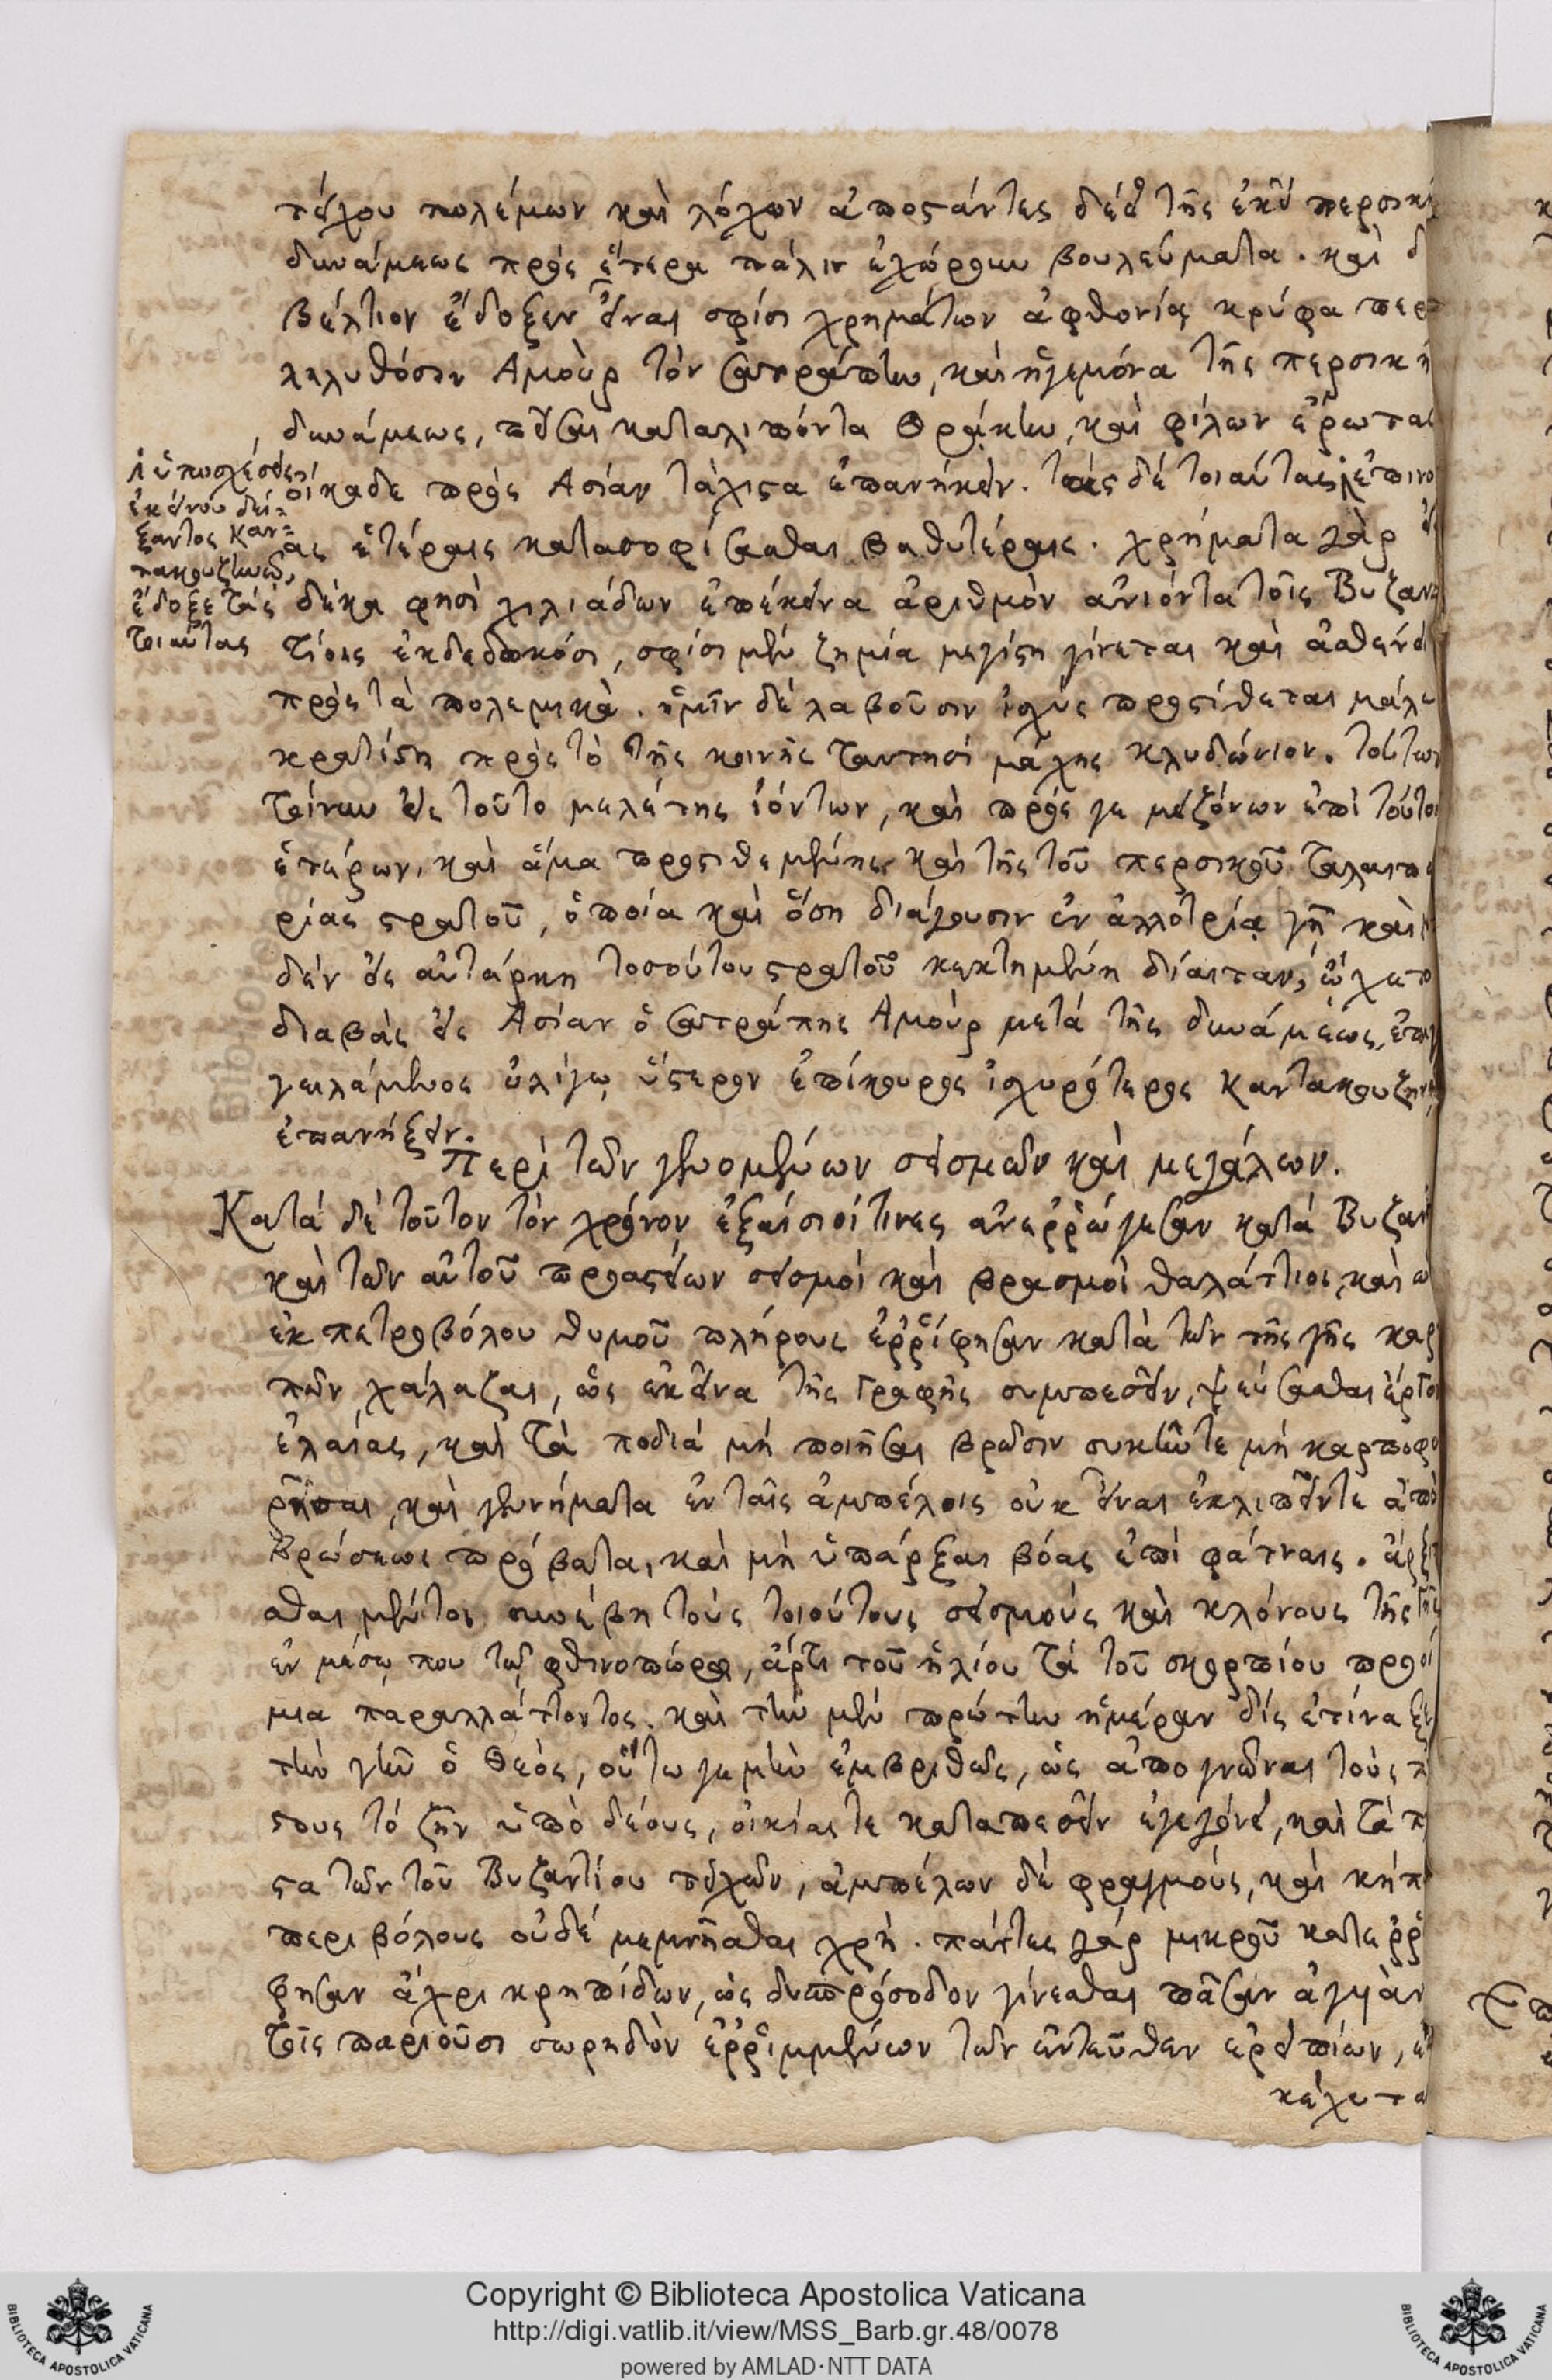 τείχου πολέμων καὶ λόχων ἀποστάντες δέει τῆς ἐκεῖ περσικῆ
δυνάμεως πρὸς ἕτερα πάλιν ἐχώρουν βουλεύματα. καὶ δ
βέλτιον ἔδοξεν εἶναι σφίσι χρημάτων ἀφθονίας κρύφα πεπ
λελυθόσιν Ἀμοὺρ τὸν σατράπην, καὶ ἡγεμόνα τῆς περσικῆ
δυνάμεως, πεῖσαι καταλιπόντα Θράκην, καὶ φίλων ἔρωτας
οἴκαδε πρὸς Ἀσίαν τάχιστα ἐπανήκειν. τὰς δὲ τοιαύτας ἐπινο
ὑποσχέσθαι
ἐκείνου δεί-
ξαντος Καν-
τακουζηνῷ,
ἔδοξε τὰς
τοιαύτας
ας ἑτέραις κατασοφίσασθαι βαθυτέραις. χρήματα γὰρ εἰς
δέκα φησὶ χιλιάδων ἐπέκεινα ἀριθμὸν ἀνιόντα τοῖς Βυζαν
τίοις ἐκδεδωκόσι, σφίσι μὲν ζημία μεγίστη γίνεται καὶ ἀσθένει
πρὸς τὰ πολεμικὰ. ἡμῖν δὲ λαβοῦσιν ἰσχὺς προστίθεται μάλα
κρατίστη πρὸς τὸ τῆς κοινῆς ταυτησὶ μάχης κλυδώνιον. τούτων
τοίνυν εἰς τοῦτο μελέτης ἰόντων, καὶ πρός γε μειζόνων ἐπὶ τούτοι
ἑτέρων, καὶ ἅμα προστιθεμένης καὶ τῆς τοῦ περσικοῦ ταλαιπω
ρίας στρατοῦ, ὁποία καὶ ὅση διάγουσιν ἐν ἀλλοτρίᾳ γῇ καὶ
δὲν εἰς αὐτάρκη τοσούτου στρατοῦ κεκτημένῃ δίαιταν, ᾤχετο
διαβὰς εἰς Ἀσίαν ὁ σατράπης Ἀμοὺρ μετὰ τῆς δυνάμεως, ἐπαγ
γειλάμενος ὀλίγῳ ὕστερον ἐπίκουρος ἰσχυρότερος Καντακουζην
ἐπανήξειν.
Περὶ τῶν γενομένων σεισμῶν καὶ μεγάλων.
Κατὰ δὲ τοῦτον τὸν χρόνον ἐξαίσιοί τινες ἀνεῤῥώγεσαν κατὰ Βυζαν
καὶ τῶν αὐτοῦ προαστείων σεισμοὶ καὶ βρασμοὶ θαλάττιοι, καὶ ὡ
ἐκ πετροβόλου θυμοῦ πλήρους ἐῤῥίφησαν κατὰ τῶν τῆς γῆς καρ
πῶν χάλαζαι, ὡς ἐκεῖνα τῆς Γραφῆς συμπεσεῖν, ψεύσασθαι ἔργον
ἐλαίας, καὶ τὰ πεδία μὴ ποιῆσαι βρῶσιν συκῆν τε μὴ καρποφο
ρῆσαι, καὶ γεννήματα ἐν ταῖς ἀμπέλοις οὐκ εἶναι ἐκλιπεῖν τε ἀπὸ
βρώσεως πρόβατα, καὶ μὴ ὑπάρξαι βόας ἐπὶ φάτναις. ἄρξα
σθαι μέντοι συνέβη τοὺς τοιούτους σεισμοὺς καὶ κλόνους τῆς γῆς
ἐν μέσῳ που τῷ φθινοπώρῳ, ἄρτι τοῦ ἡλίου τὰ τοῦ σκορπίου προοί
μια παραλλάττοντος. καὶ τὴν μὲν πρώτην ἡμέραν δὶς ἐτίναξεν
τὴν γῆν ὁ Θεὸς, οὕτω γε μὴν ἐμβριθῶς, ὡς ἀπογνῶναι τοὺς π
τους τὸ ζῆν ὑπὸ δέους, οἰκίας τε καταπεσεῖν ἐγεγόνει, καὶ τὰ π
στα τῶν τοῦ Βυζαντίου τειχῶν, ἀμπέλων δὲ φραγμούς, καὶ κήπ
περιβόλους οὐδὲ μεμνῆσθαι χρή. πάντες γὰρ μικροῦ κατεῤῥί
φησαν ἄχρι κρηπίδων, ὡς δυσπρόσοδον γίνεσθαι πᾶσαν ἀγυιὰν
τοῖς παριοῦσι σωρηδὸν ἐῤῥιμμένων τῶν ἐντεῦθεν ἐρειπίων, ἐκ
κέχυτο
Copyright © Biblioteca Apostolica Vaticana
http://digi.vatlib.it/view/MSS_Barb.gr.48/0078
powered by AMLAD·NTT DATA
BIBLIOTECA APOSTOLICA VATICANA
BIBLIOTECA APOSTOLICA VATICANA